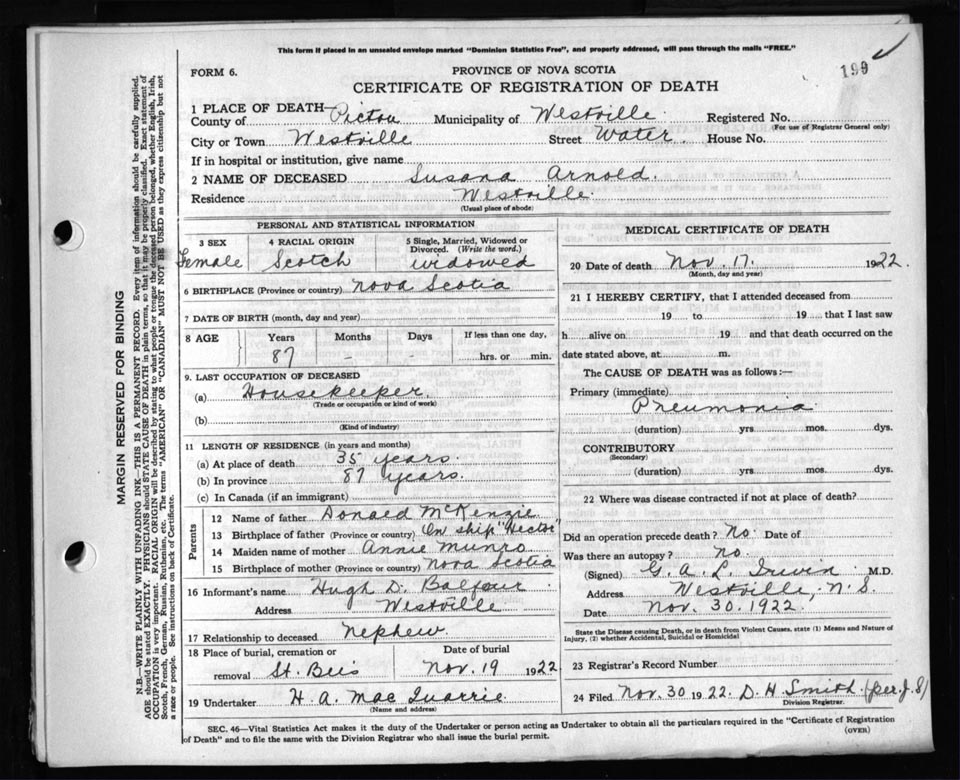 This form if placed in an unsealed envelope marked "Dominion Statistics Free", and properly addressed, will pass through the mails "FREE."
199
FORM 6.
PROVINCE OF NOVA SCOTIA
CERTIFICATE OF REGISTRATION OF DEATH
1 PLACE OF DEATH—
County of Pictou Municipality of Westville Registered No.
(For use of Registrar General only)
City or Town Westville Street Water House No.
If in hospital or institution, give name
2 NAME OF DECEASED Susana Arnold.
Residence Westville.
(Usual place of abode)
PERSONAL AND STATISTICAL INFORMATION
3 SEX 4 RACIAL ORIGIN 5 Single, Married, Widowed or Divorced. (Write the word.)
Female Scotch widowed
6 BIRTHPLACE (Province or country) Nova Scotia
7 DATE OF BIRTH (month, day and year)
8 AGE Years Months Days If less than one day,
87 - - hrs. or min.
9. LAST OCCUPATION OF DECEASED
(a) Housekeeper.
(Trade or occupation or kind of work)
(b)
(Kind of industry)
11 LENGTH OF RESIDENCE (in years and months)
(a) At place of death 35 years.
(b) In province 87 years.
(c) In Canada (if an immigrant)
Parents
12 Name of father Donald McKenzie
13 Birthplace of father (Province or country) On ship "Hector"
14 Maiden name of mother Annie Munro
15 Birthplace of mother (Province or country) Nova Scotia
16 Informant's name Hugh D. Balfour
Address Westville.
17 Relationship to deceased nephew.
18 Place of burial, cremation or removal Date of burial
St. Bees Nov. 19 1922
19 Undertaker H. A. Mac Quarrie
(Name and address)
MEDICAL CERTIFICATE OF DEATH
20 Date of death Nov. 17. 1922.
(Month, day and year)
21 I HEREBY CERTIFY, that I attended deceased from
19 to 19 that I last saw
h alive on 19 and that death occurred on the
date stated above, at m.
The CAUSE OF DEATH was as follows:—
Primary (immediate)
Pneumonia
(duration) yrs mos. dys.
CONTRIBUTORY
(Secondary)
(duration) yrs mos. dys.
22 Where was disease contracted if not at place of death?
Did an operation precede death? No. Date of
Was there an autopsy? no.
(Signed) G. A. L. Irwin M.D.
Address Westville, N. S.
Date Nov. 30. 1922.
State the Disease causing Death, or in death from Violent Causes, state (1) Means and Nature of
Injury, (2) whether Accidental, Suicidal or Homicidal
23 Registrar's Record Number
24 Filed Nov. 30 1922. D. H. Smith (per. J. S)
Division Registrar.
SEC. 46—Vital Statistics Act makes it the duty of the Undertaker or person acting as Undertaker to obtain all the particulars required in the "Certificate of Registration
of Death" and to file the same with the Division Registrar who shall issue the burial permit.
(OVER)
MARGIN RESERVED FOR BINDING
N.B.—WRITE PLAINLY WITH UNFADING INK—THIS IS A PERMANENT RECORD. Every item of information should be carefully supplied.
AGE should be stated EXACTLY. PHYSICIANS should STATE CAUSE OF DEATH in plain terms, so that it may be properly classified. Exact statement of
OCCUPATION is very important. RACIAL ORIGIN will be described by stating to what people or tongue the deceased person belonged, whether English, Irish,
Scotch, French, German, Russian, Ruthenian, etc. The terms "AMERICAN" or "CANADIAN" MUST NOT BE USED as they express citizenship but not
a race or people. See instructions on back of Certificate.